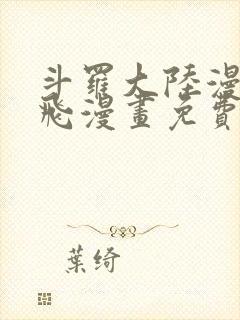 斗羅大陸漫
飛漫畫免費
葉綺